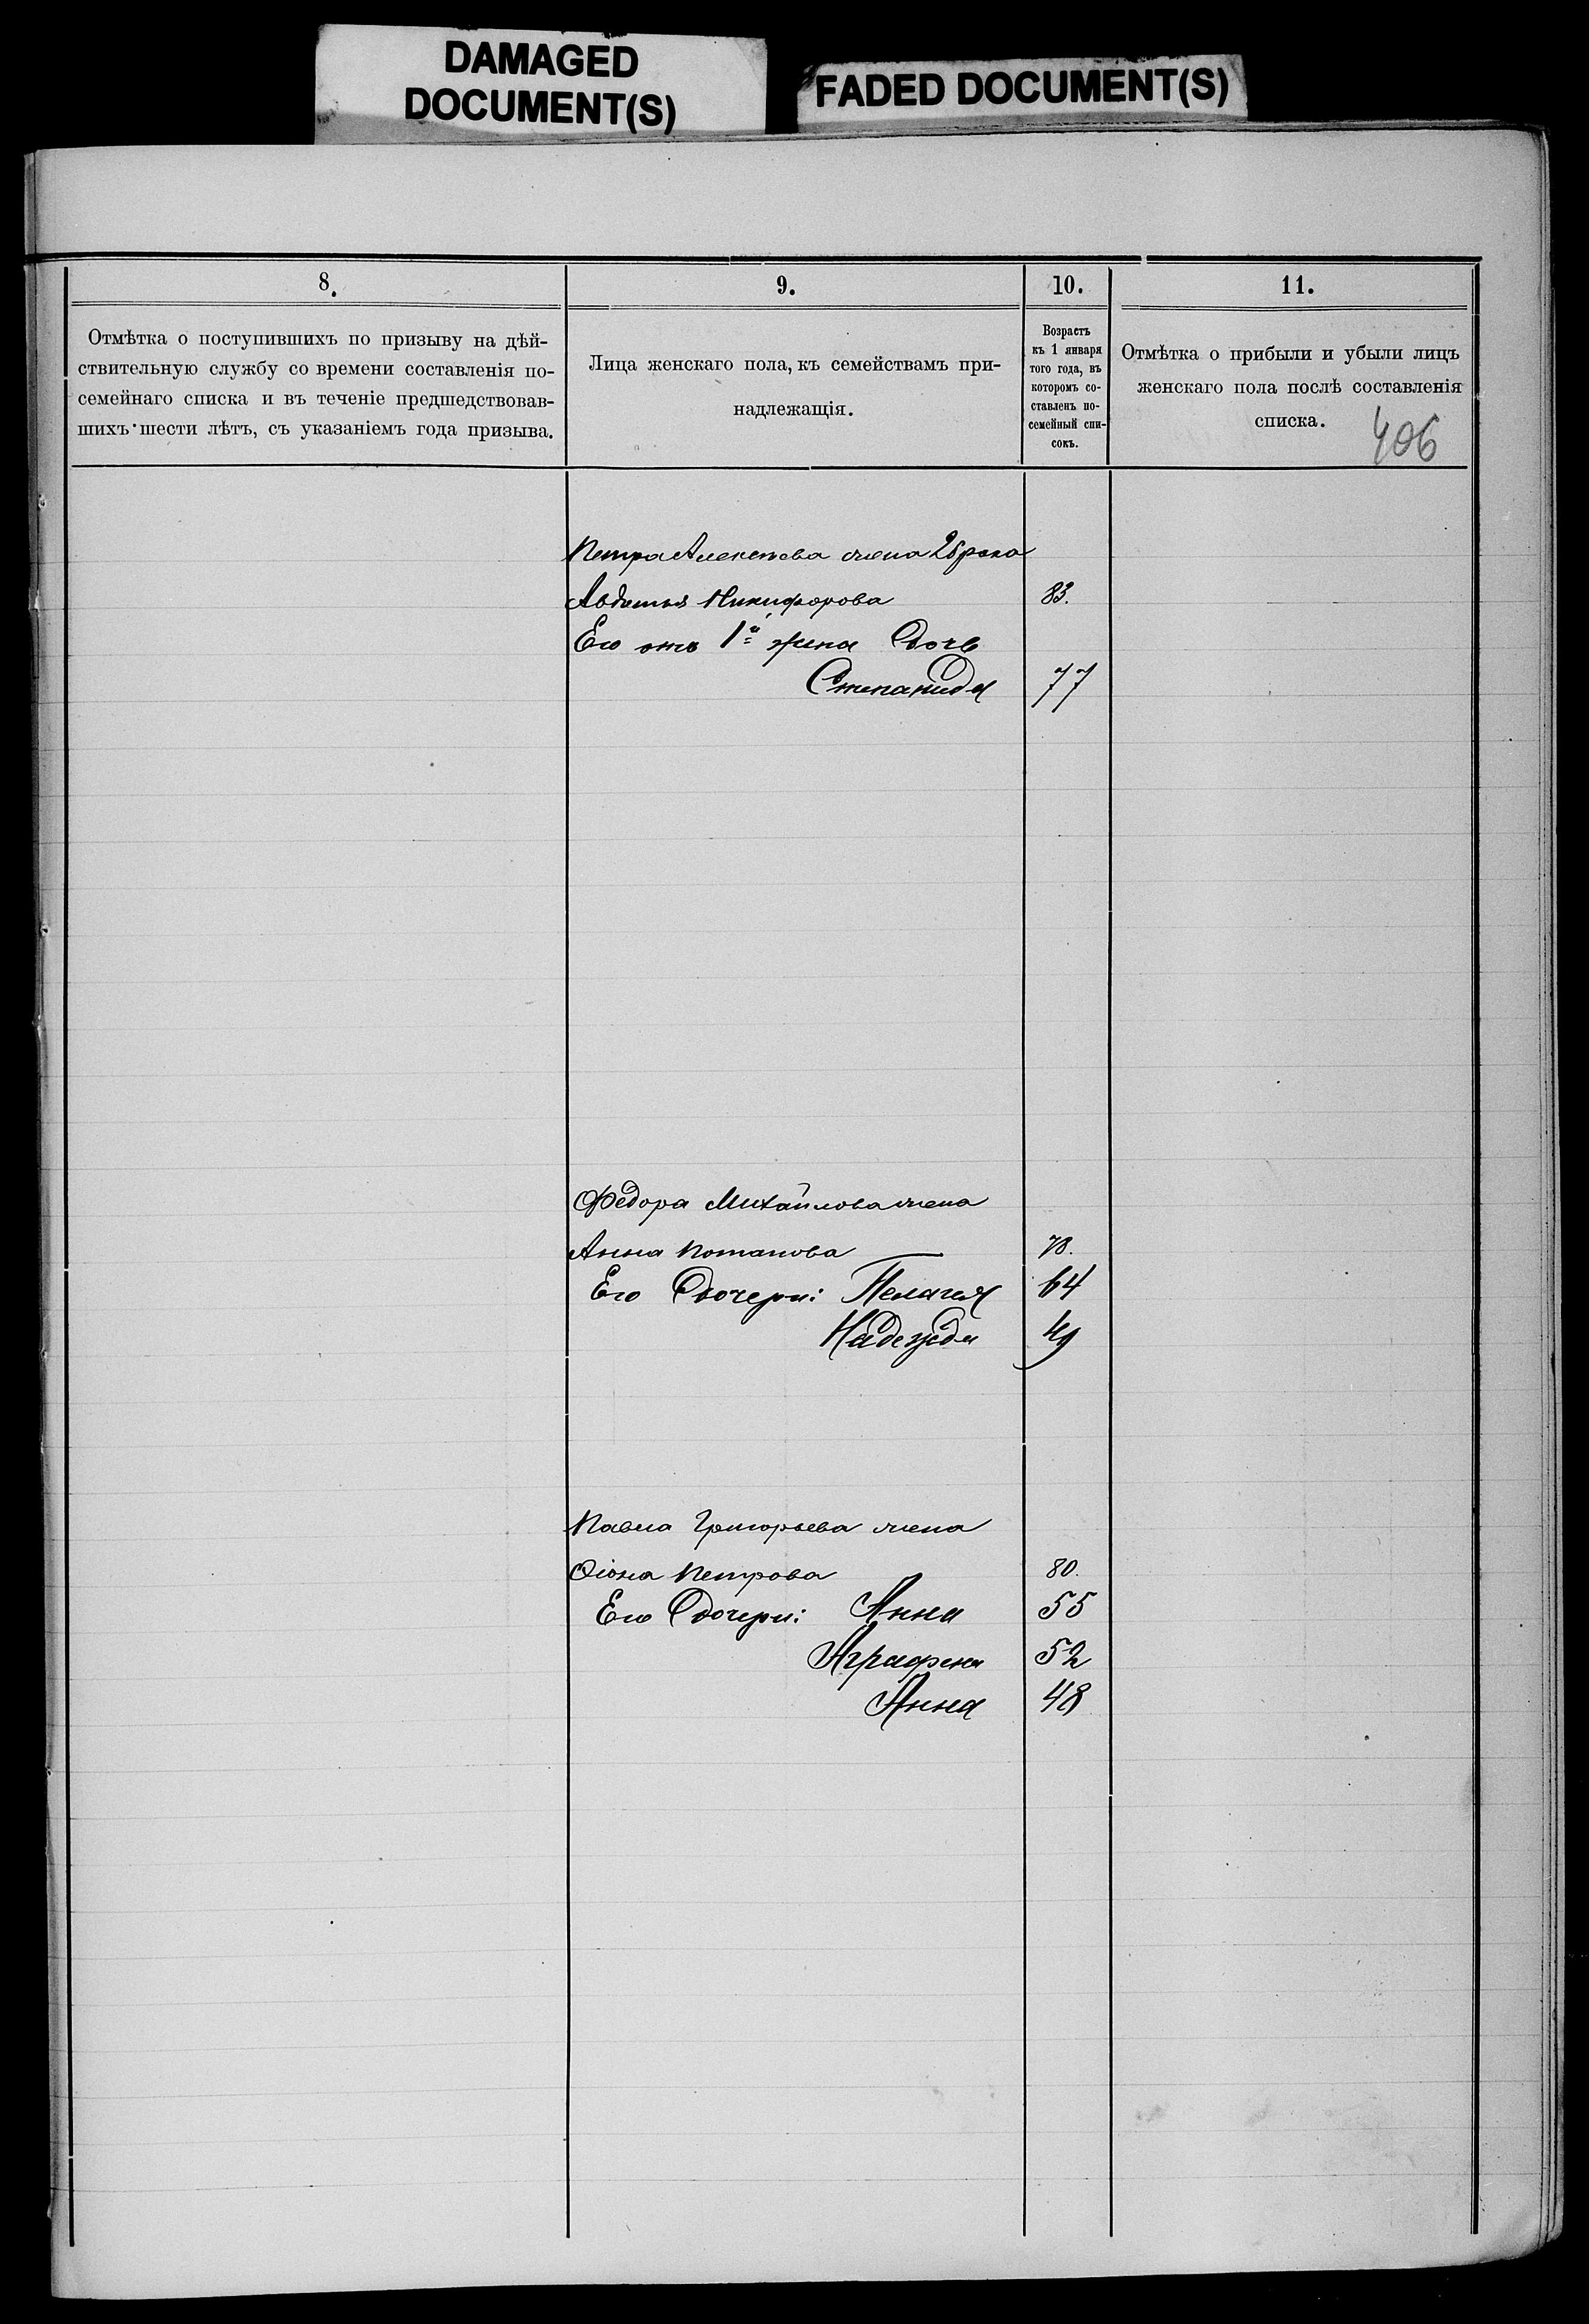 DAMAGED
DOCUMENT(S)
FADED DOCUMENT(S)
8.
Отмѣтка о поступившихъ по призыву на дѣй-
ствительную службу со времени составленія по-
семейнаго списка и въ теченіе предшедствовав-
шихъ шести лѣтъ, съ указаніемъ года призыва.
9.
Лица женскаго пола, къ семействамъ при-
надлежащія.
10.
Возрастъ
къ 1 января
того года, въ
которомъ со-
ставленъ по-
семейный спи-
сокъ.
11.
Отмѣтка о прибыли и убыли лицъ
женскаго пола послѣ составленія
списка.
406
Петра Алексѣева жена 2 брака
Авдотья Никифорова 83.
Его отъ 1й жена Дочь
Степанида 77
Федора Михайлова жена
Анна Потапова 78.
Его Дочери: Пелагея 64
Надежда 49
Павла Григорьева жена
Петрова 80.
Его Дочери: Анна 55
Аграфена 52
Анна 48